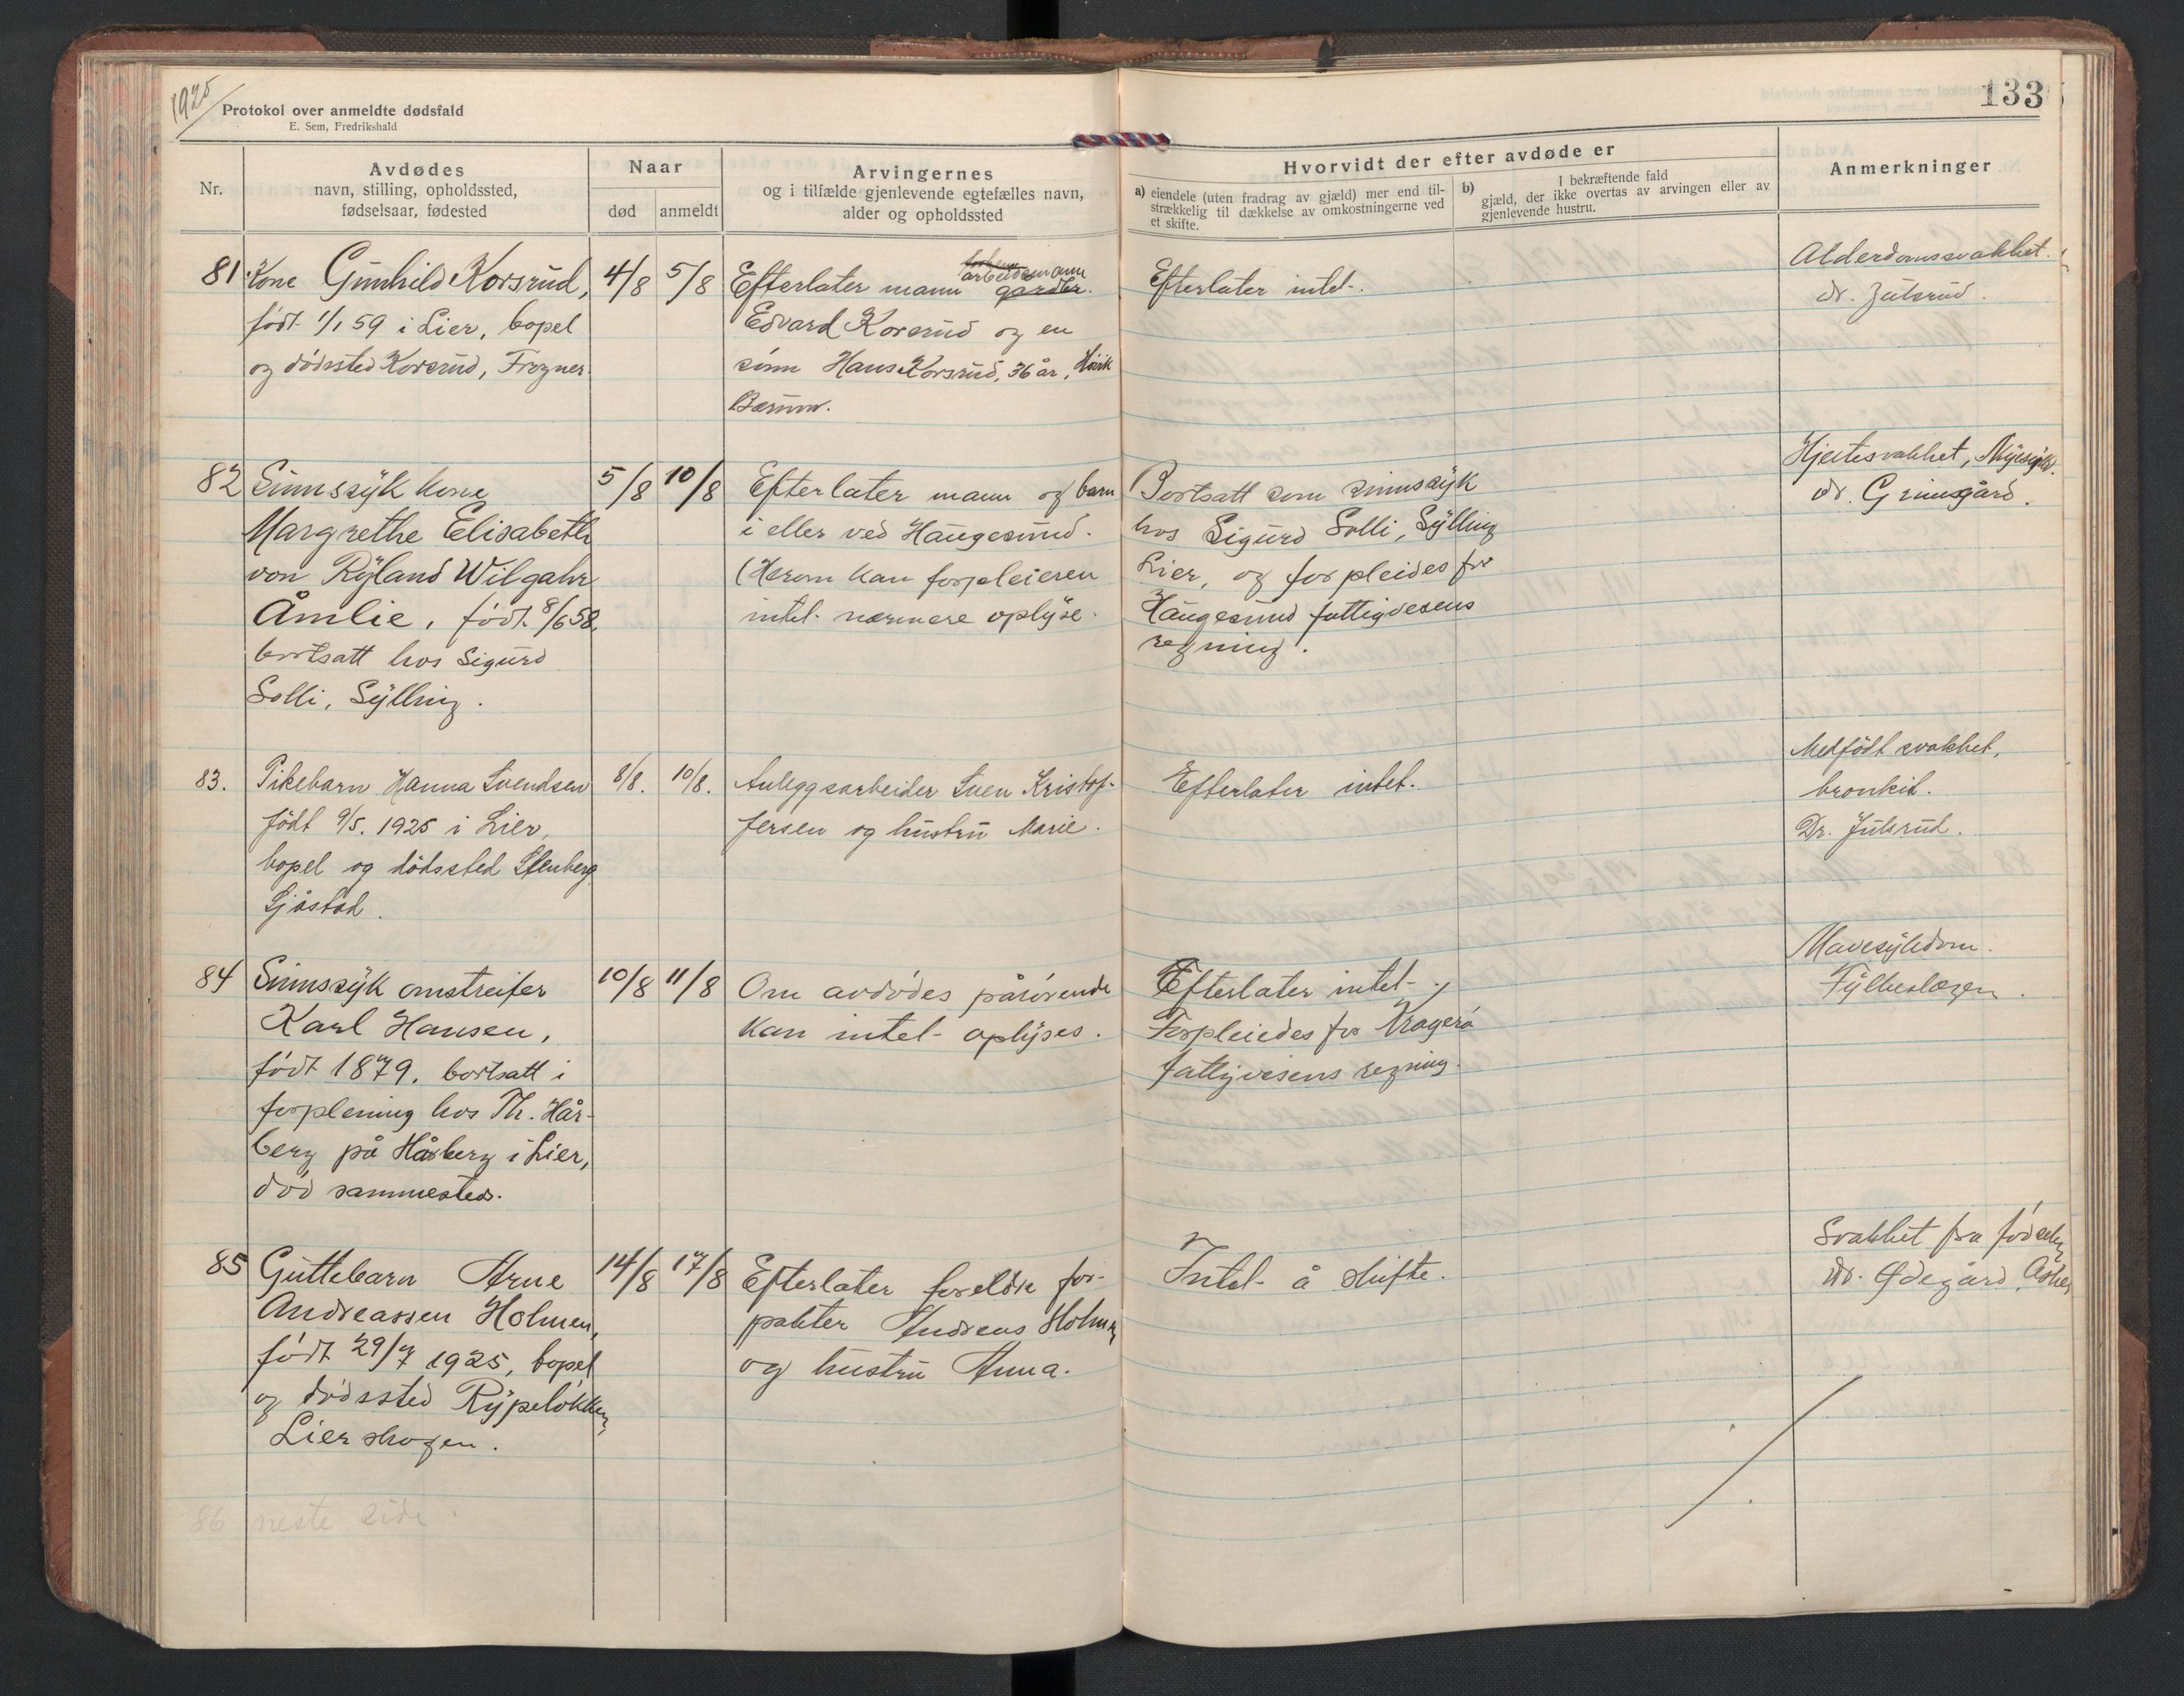 1925
Protokol over anmeldte dødsfald
E. Sem, Fredrikshald
133
Nr.
Avdødes
navn, stilling, opholdssted,
fødselsaar, fødested
Naar
død
anmeldt
Arvingernes
og i tilfælde gjenlevende egtefælles navn,
alder og opholdssted
Hvorvidt der efter avdøde er
a) eiendele (uten fradrag av gjæld) mer end til-
strækkelig til dækkelse av omkostningerne ved
et skifte.
b) I bekræftende fald
gjæld, der ikke overtas av arvingen eller av
gjenlevende hustru.
Anmerkninger
81 Kone Gunhild Korsrud,
født 1/1 59 i Lier, bopel
og dødssted Korsrud, Frogner.
4/8
5/8
arbeidsmann
Efterlater mann gårdbr.
Edvard Korsrud og en
sønn Hans Korsrud, 36 år, Høvik
Bærum.
Efterlater intet.
Alderdomssvakhet.
dr. Julsrud.
82 Sinnssyk kone
Margrethe Elisabeth
von Ryland Wilgahr
Åmlie, født 8/6 58,
bortsatt hos Sigurd
Solli, Sylling.
5/8
10/8
Efterlater mann og barn
i eller ved Haugesund.
(Herom kan forpleieren
intet nærmere oplyse.
Bortsatt som sinnssyk
hos Sigurd Solli, Sylling
Lier, og forpleides for
Haugesund fattigvesens
regning.
Hjertesvakhet,
dr. Grimsgård.
83. Pikebarn Hanna Svendsen
født 9/5. 1925 i Lier,
bopel og dødssted Stenberg
Sjåstad.
8/8.
10/8.
Anleggsarbeider Sven Kristof-
fersen og hustru Marie.
Efterlater intet.
Medfødt svakhet,
bronkit.
Dr. Julsrud.
84 Sinnssyk omstreifer
Karl Hansen,
født 1879, bortsatt i
forpleining hos Th. Hår-
berg på Hårberg i Lier,
død sammesteds.
10/8
11/8
Om avdødes pårørende
kan intet oplyses.
Efterlater intet.
Forpleiedes for Kragerø
fattigvesens regning.
Mavesykdom.
Fylkeslægen.
85 Guttebarn Arne
Andreassen Holmen,
født 29/7 1925, bopel
og dødssted Rypeløkken,
Lierskogen.
14/8
17/8
Efterlater foreldre for-
pakter Andreas Holmen
og hustru Anna.
Intet å skifte.
Svakhet fra fødselen
dr. Ødegård, Asker
86 neste side.